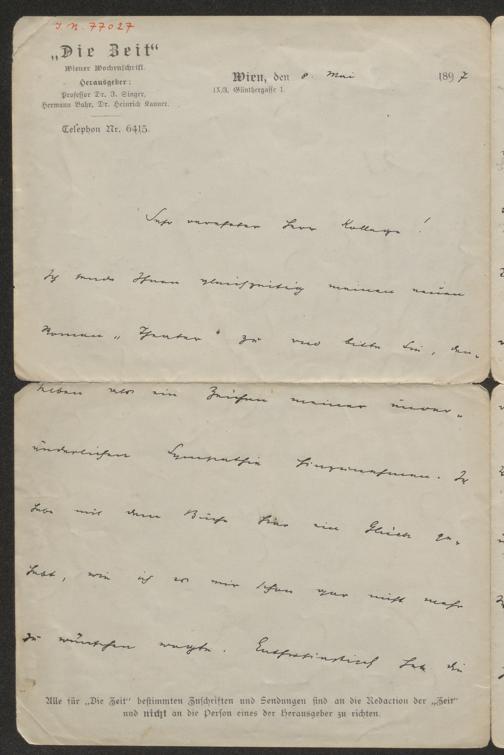 I. N. 77027
„Die Zeit“
Wiener Wochenschrift.
Herausgeber:
Professor Dr. I. Singer,
Hermann Bahr, Dr. Heinrich Kanner.
Telephon Nr. 6415.
Wien, den 8. Mai 1897
IX/3, Günthergasse 1.
Sehr verehrter Herr Kollege!
Ich sende Ihnen gleichzeitig meinen neuen
Roman „Theater“ zu und bitte Sie, den-
selben als ein Zeichen meiner unver-
änderlichen Sympathie hinzunehmen. Ich
habe mit dem Buche hier ein Glück ge-
habt, wie ich es mir schon gar nicht mehr
zu wünschen wagte. Enthusiastisch hat die
Alle für „Die Zeit“ bestimmten Zuschriften und Sendungen sind an die Redaction der „Zeit“
und nicht an die Person eines der Herausgeber zu richten.